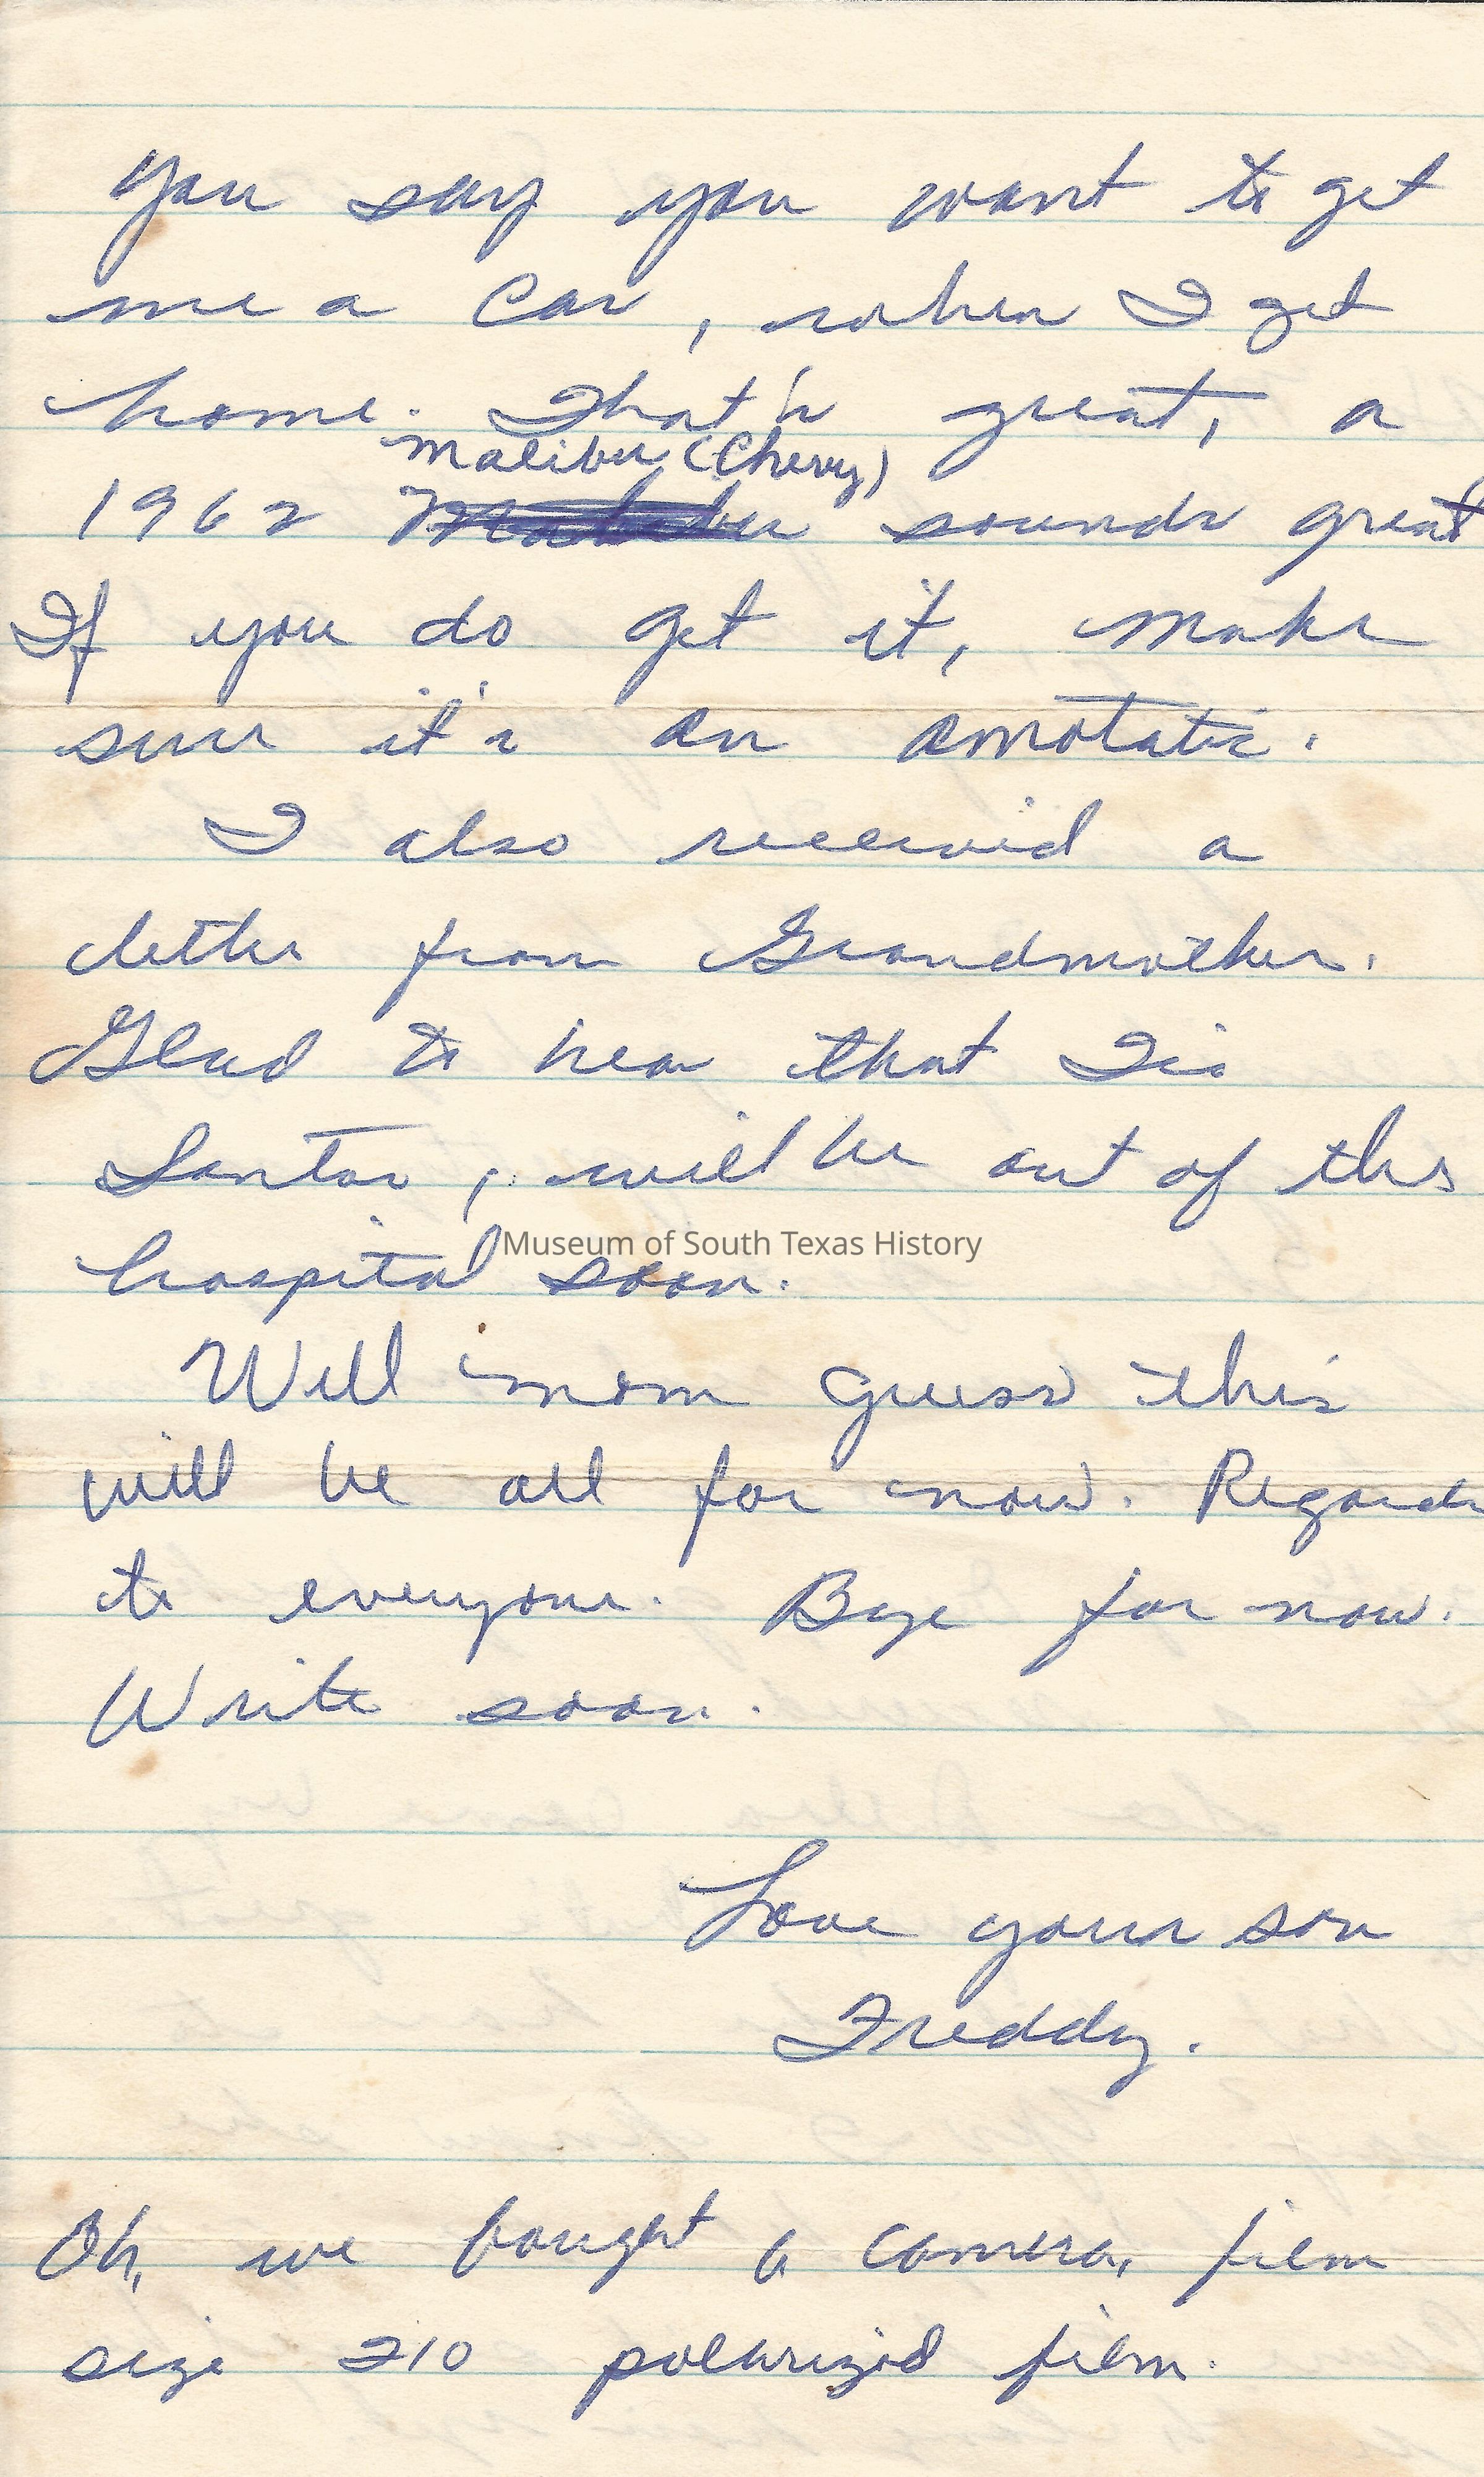 you say you want to get
me a car, when I get
home. That's great, a
malibu (Chevy)
1962 sounds great
If you do get it, make
sure it's an amotatic.
I also received a
letter from Grandmother.
Glad to hear that Tio
Santos, will be out of the
hospital soon.
Museum of South Texas History
Well mom guess this
will be all for now. Regards
to everyone. Bye for now.
Write soon.
Love your son
Freddy.
Oh, we bought a camera, film
size 210 polarizid film.